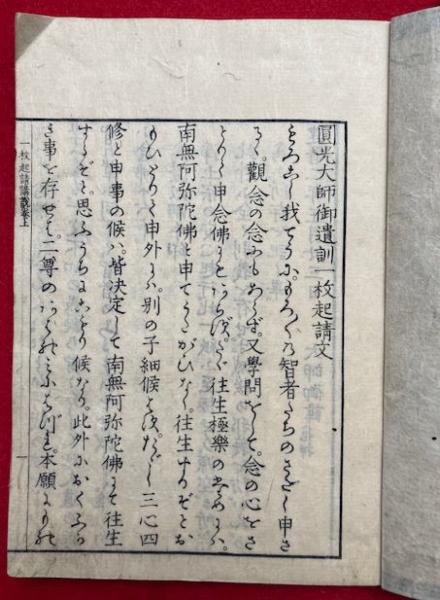 圓光大師御遺訓一枚起請文
もろこし我てうに。もろ〳〵の智者たちのさたし申さ
るゝ。觀念の念にもあらず。又學問をして。念の心をさ
とりて申念佛にもあらず。たゞ往生極樂のためには。
南無阿弥陀佛と申てうたがひなく。往生するぞとお
もひとりて申外には。別の子細候はず。たゞし三心四
修と申事の候ハ。皆決定して南無阿弥陀佛にて往生
するぞと。思ふうちにこもり候なり。此外におくふか
き事を存せば。二尊のあはれみにはづれ。本願にもれ
一枚起請講説巻上
一